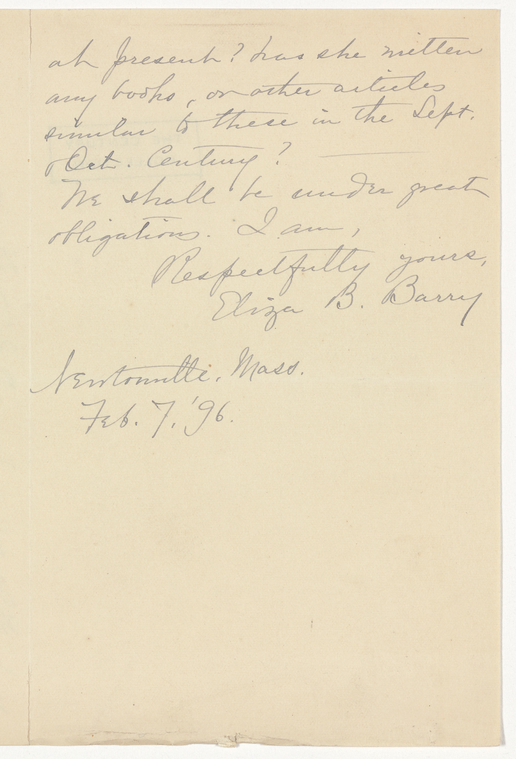 at present? has she written
any books, or other articles
similar to these in the Sept.
& Oct. Century?
We shall be under great
obligations. I am,
Respectfully yours,
Eliza B. Barry
Newtonville, Mass.
Feb. 7, '96.